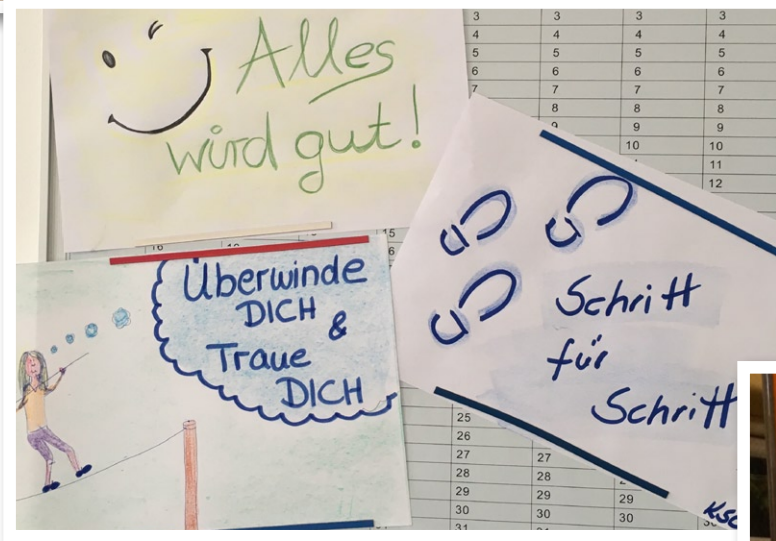 Alles
wird gut!
Überwinde
DICH
&
Traue
DICH
Schritt
für
Schritt
3 3 3 3
4 4 4 4
5 5 5 5
6 6 6 6
7 7 7 7
8 8 8
9 9 9
10 10
11
12
15
16
25
26
27 27
28 28
29 29 29
30 30 30
31